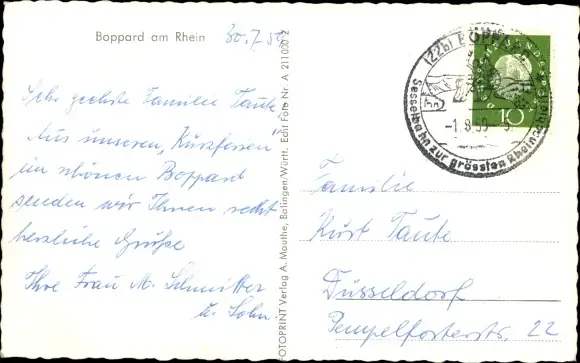 Boppard am Rhein
30.7.59
Sehr geehrte Familie Taute,
Aus unseren „Kurzferien"
im schönen Boppard
senden wir Ihnen recht
herzliche Grüße
Ihre Frau M. Schmitter
u. Sohn.
FOTOPRINT Verlag A. Mauthe, Balingen/Württ. Echt Foto Nr. A 211000 2
(22b) BOPPARD
-1.8.59-
Sesselbahn zur grössten Rheinschleife
10
Familie
Kurt Taute
Düsseldorf
Tempelforterstr. 22